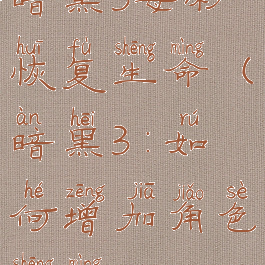 huī fù shēng mìng
恢复生命（
àn hēi rú
暗黑3:如
hé zēng jiā jiǎo sè
何增加角色